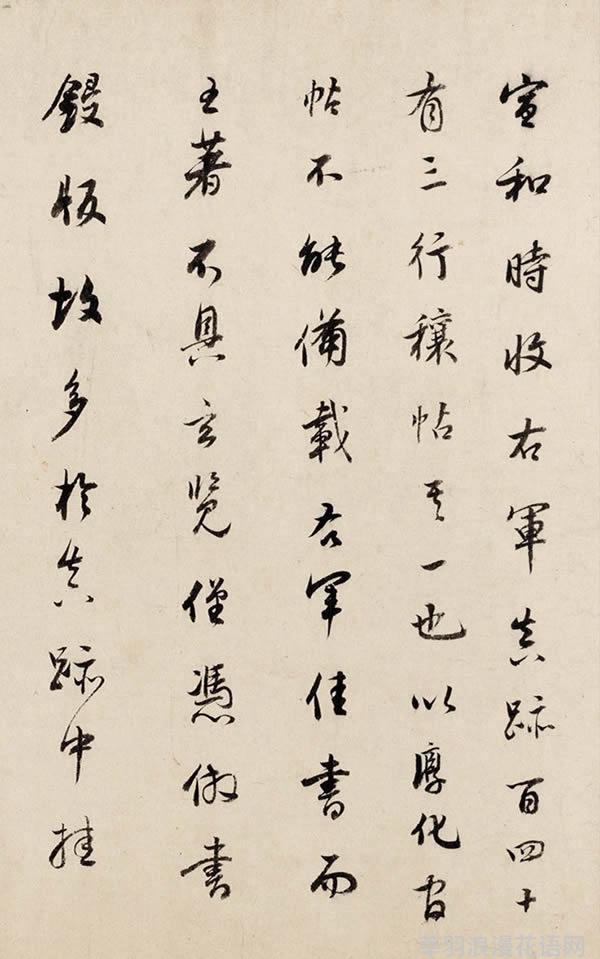 宣和時收右軍真跡百四十
有三行穰帖其一也以淳化官
帖不能備載右軍佳書而
王著不具玄覽僅憑倣書
鋟版故多於真跡中挂
浪漫花语网